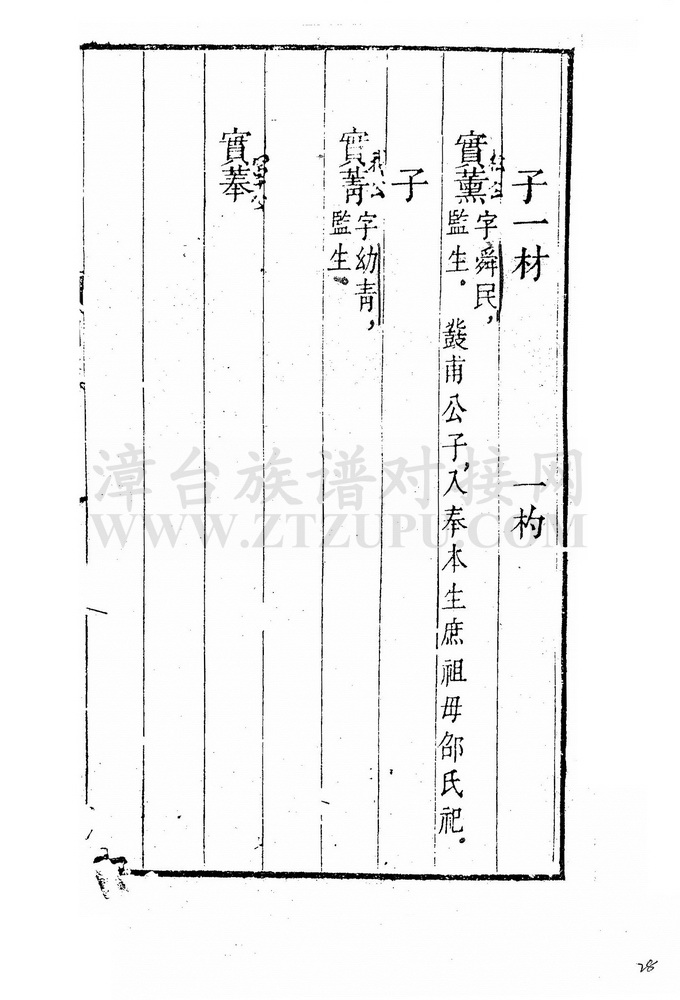 子一材 一杓
實薰 字舜民，
監生。 發甫公子，入奉本生庶祖母邵氏祀。
子
實菁 字幼青，
監生。
實菶
漳台族谱对接网
WWW.ZTZUPU.COM
28